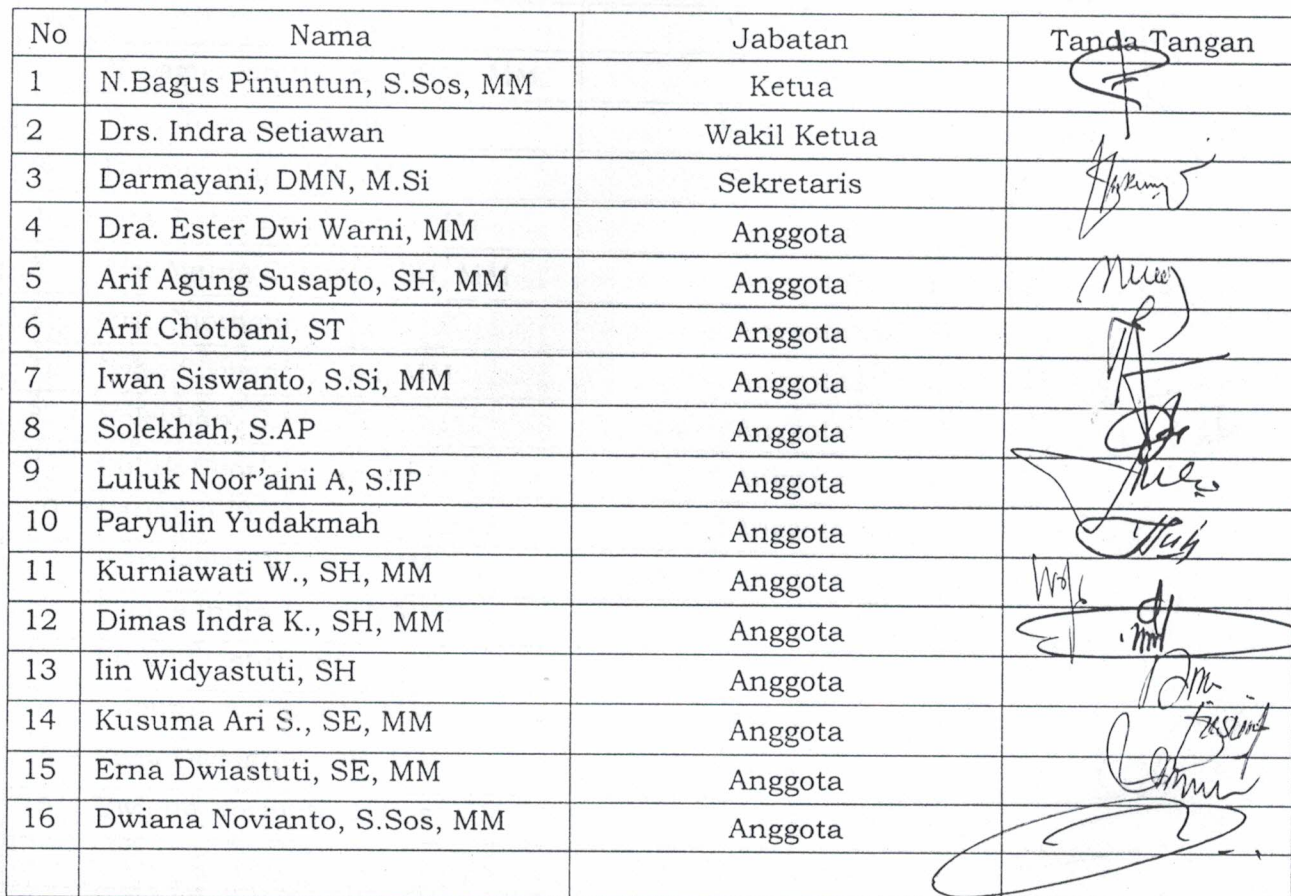 No Nama Jabatan Tanda Tangan
1 N.Bagus Pinuntun, S.Sos, MM Ketua
2 Drs. Indra Setiawan Wakil Ketua
3 Darmayani, DMN, M.Si Sekretaris
4 Dra. Ester Dwi Warni, MM Anggota
5 Arif Agung Susapto, SH, MM Anggota
6 Arif Chotbani, ST Anggota
7 Iwan Siswanto, S.Si, MM Anggota
8 Solekhah, S.AP Anggota
9 Luluk Noor’aini A, S.IP Anggota
10 Paryulin Yudakmah Anggota
11 Kurniawati W., SH, MM Anggota
12 Dimas Indra K., SH, MM Anggota
13 Iin Widyastuti, SH Anggota
14 Kusuma Ari S., SE, MM Anggota
15 Erna Dwiastuti, SE, MM Anggota
16 Dwiana Novianto, S.Sos, MM Anggota